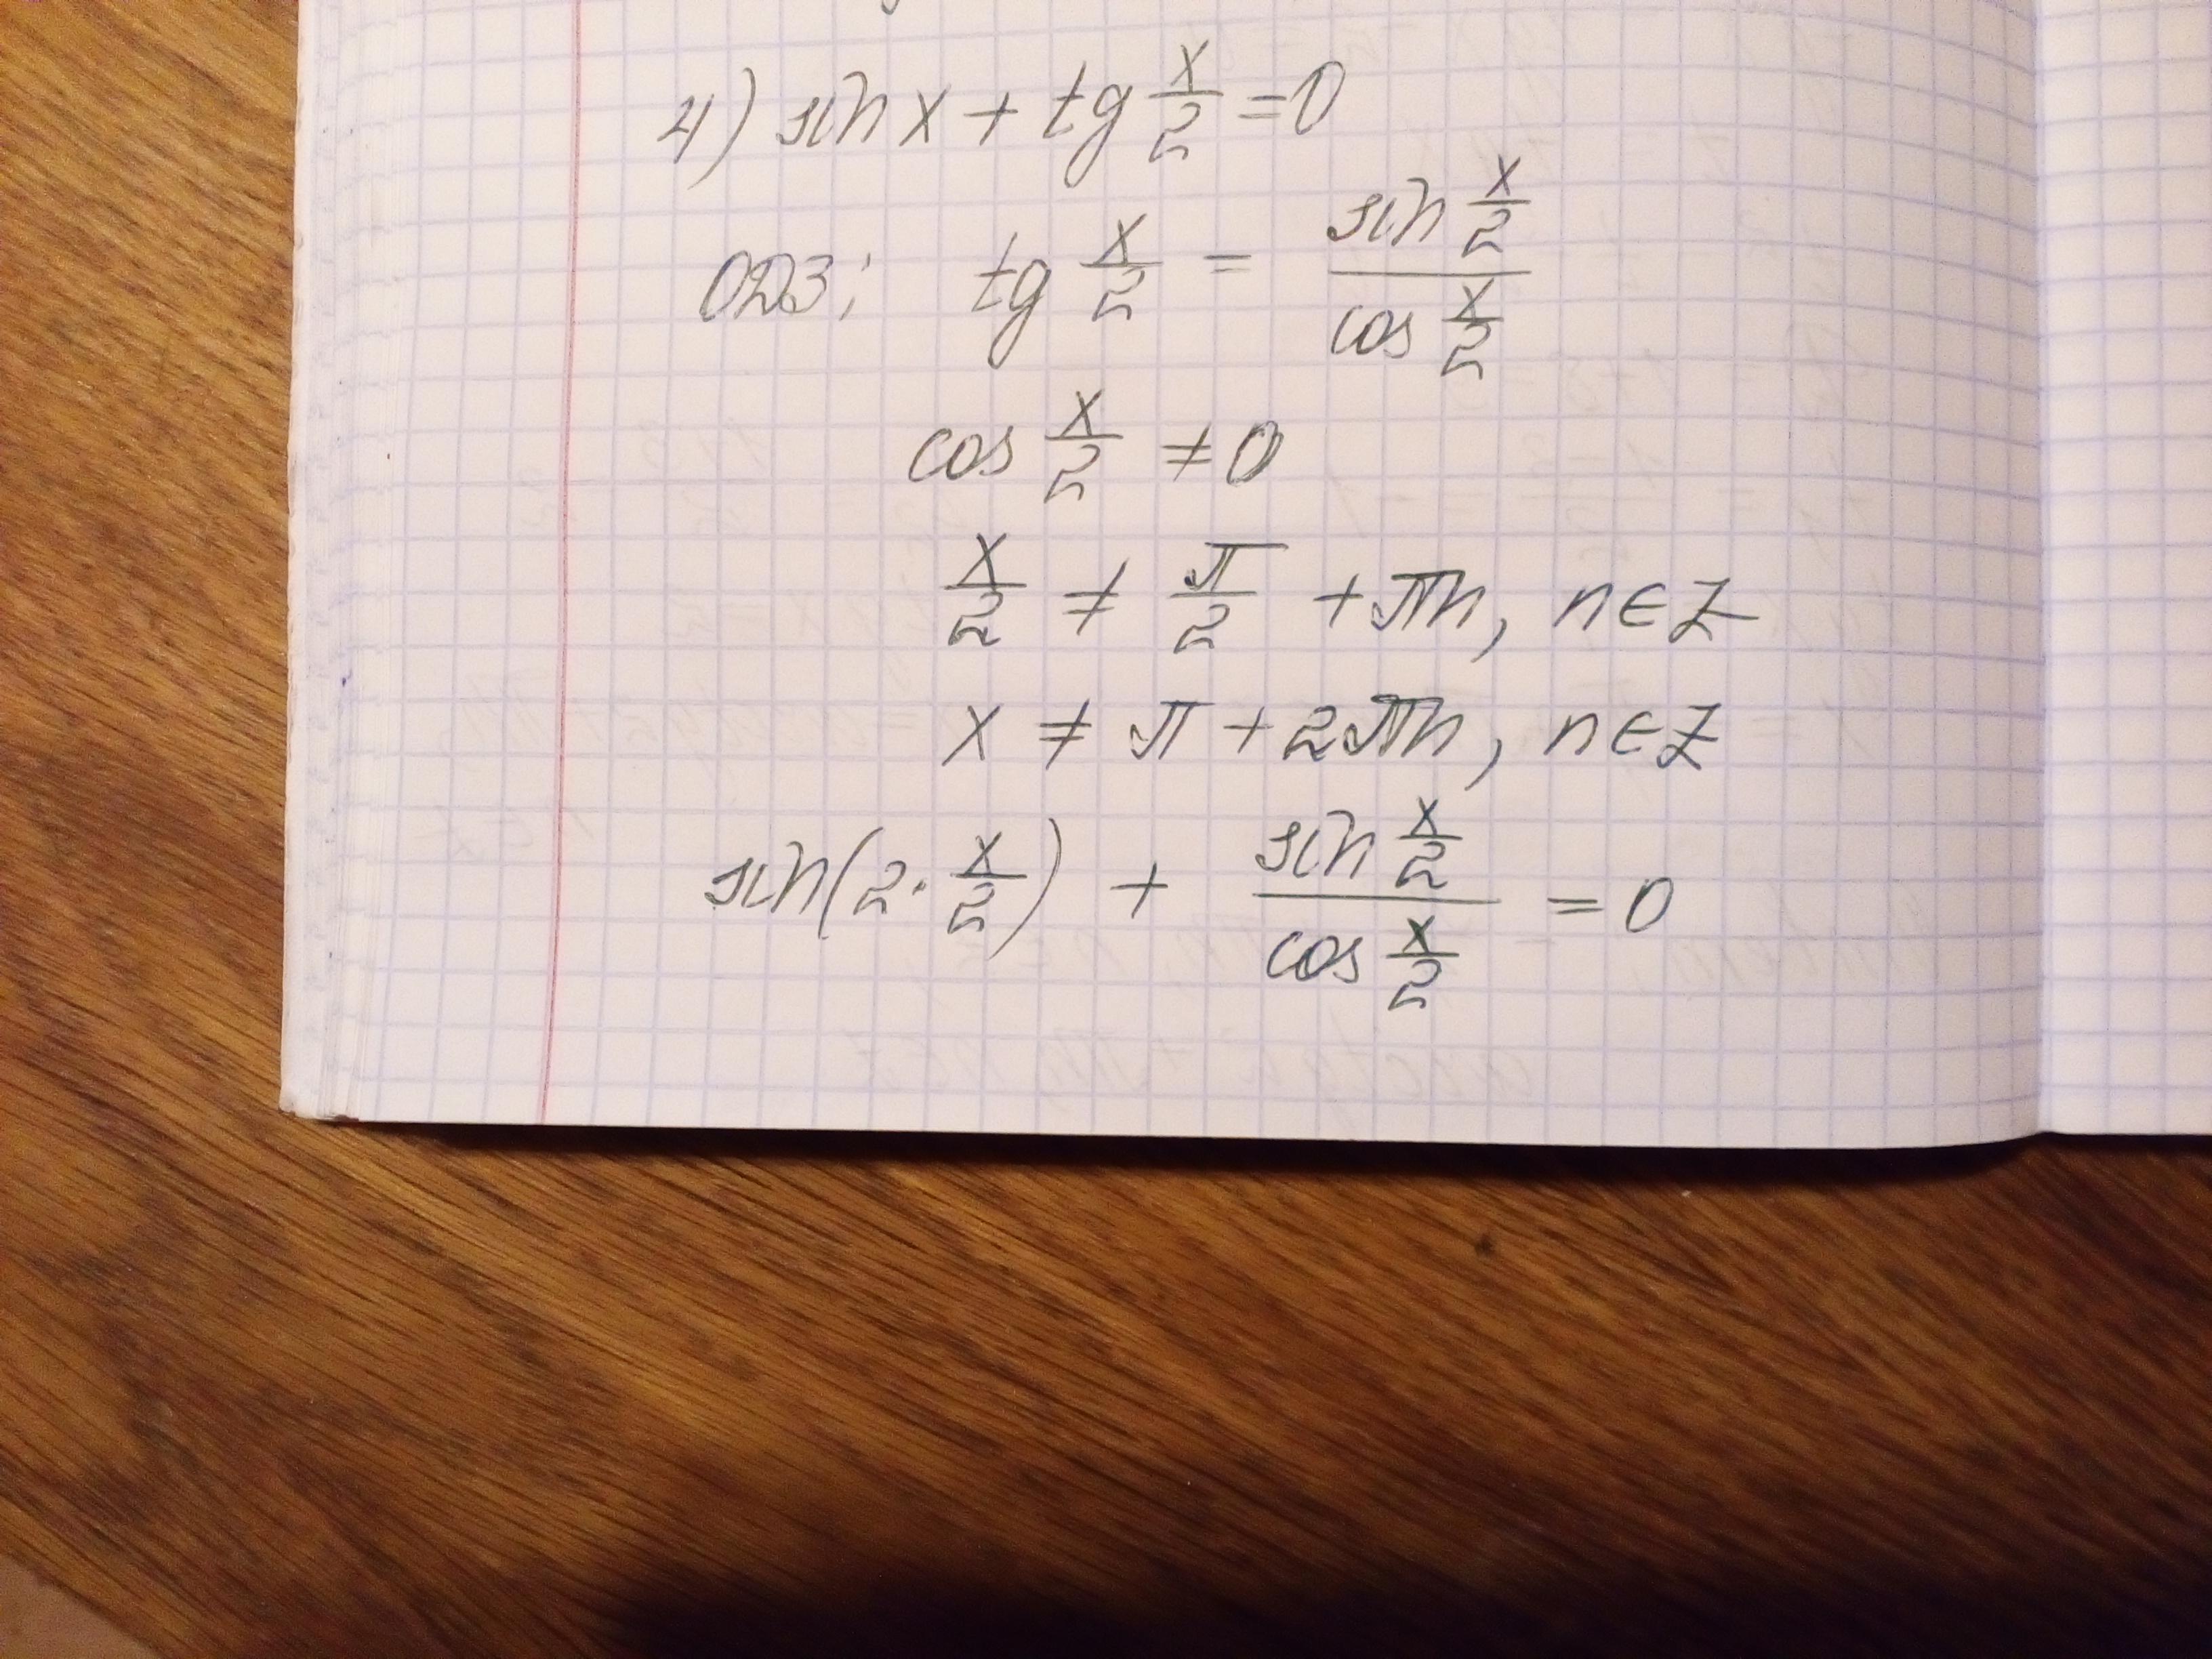 4) sin x + tg x/2 = 0
ОДЗ: tg x/2 = sin x/2 / cos x/2
cos x/2 ≠ 0
x/2 ≠ π/2 + πn, n∈Z
x ≠ π + 2πn, n∈Z
sin(2·x/2) + sin x/2 / cos x/2 = 0